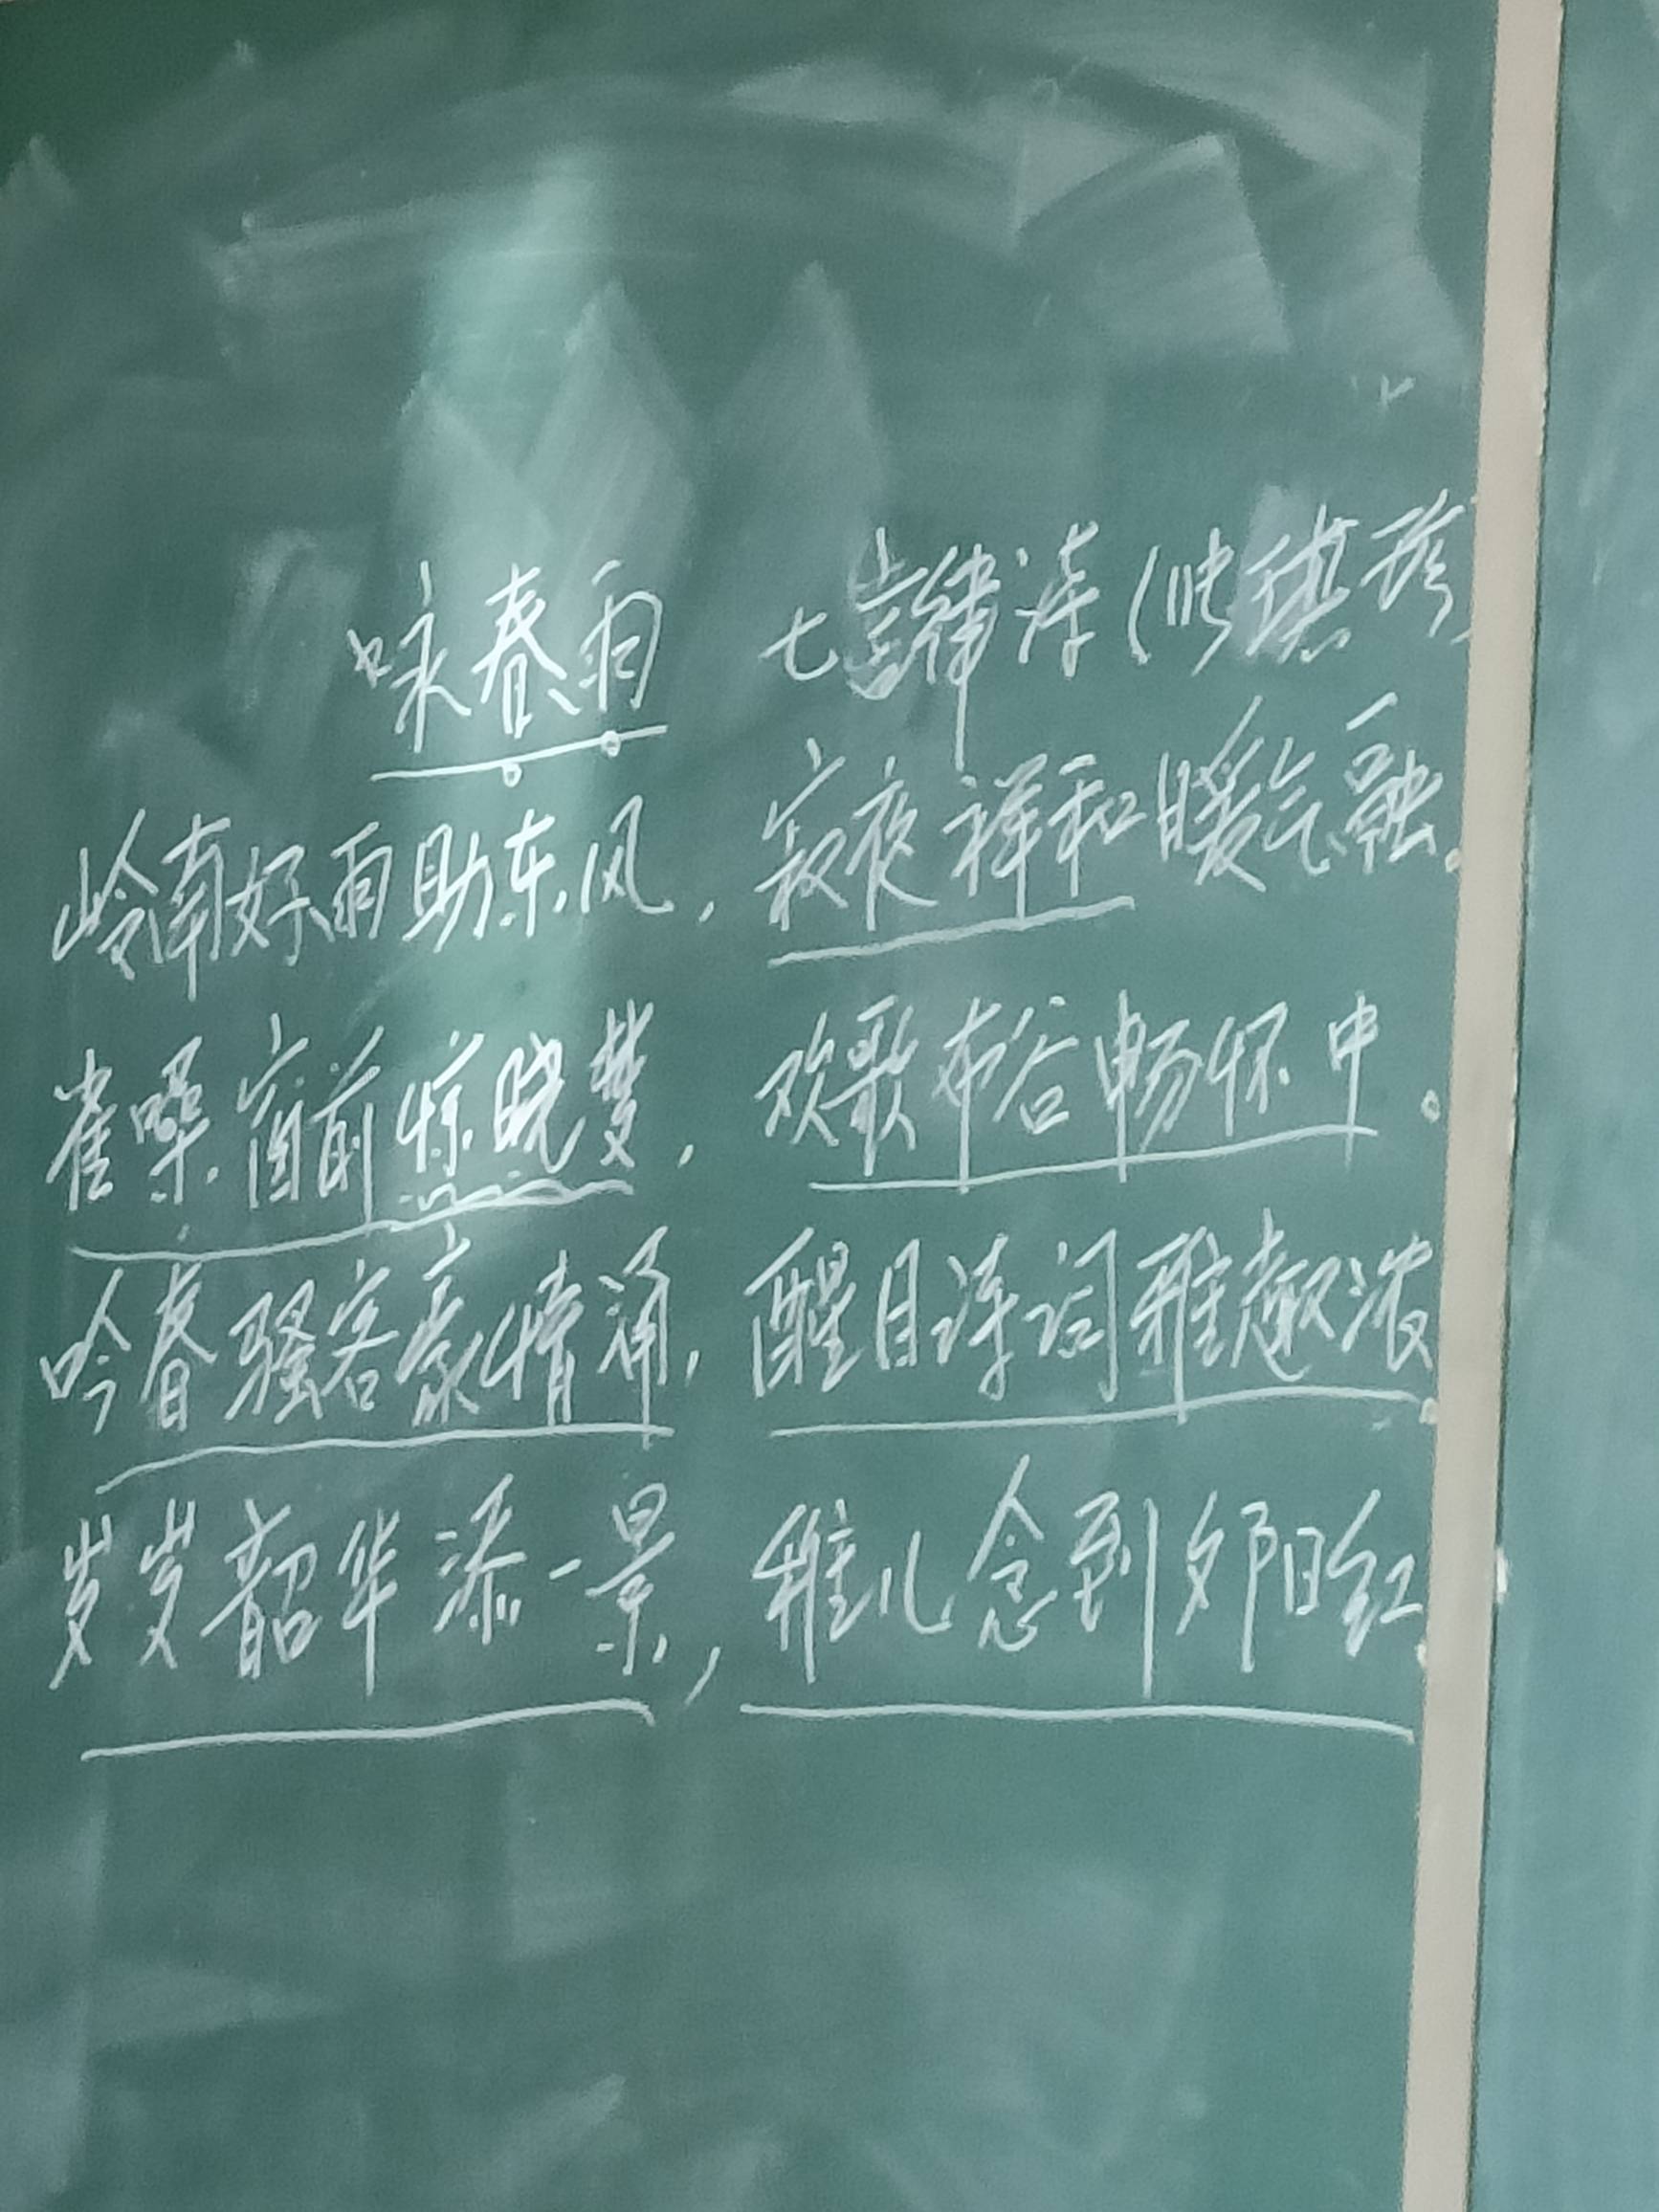 咏春雨 七言律诗(洪琪珍
岭南好雨助东风,寂夜祥和暖气融。
雀噪窗前惊晓梦,欢歌布谷畅怀中。
吟春骚客豪情涌,醒目诗词雅趣浓。
岁岁韶华添一景,稚儿念到夕阳红。